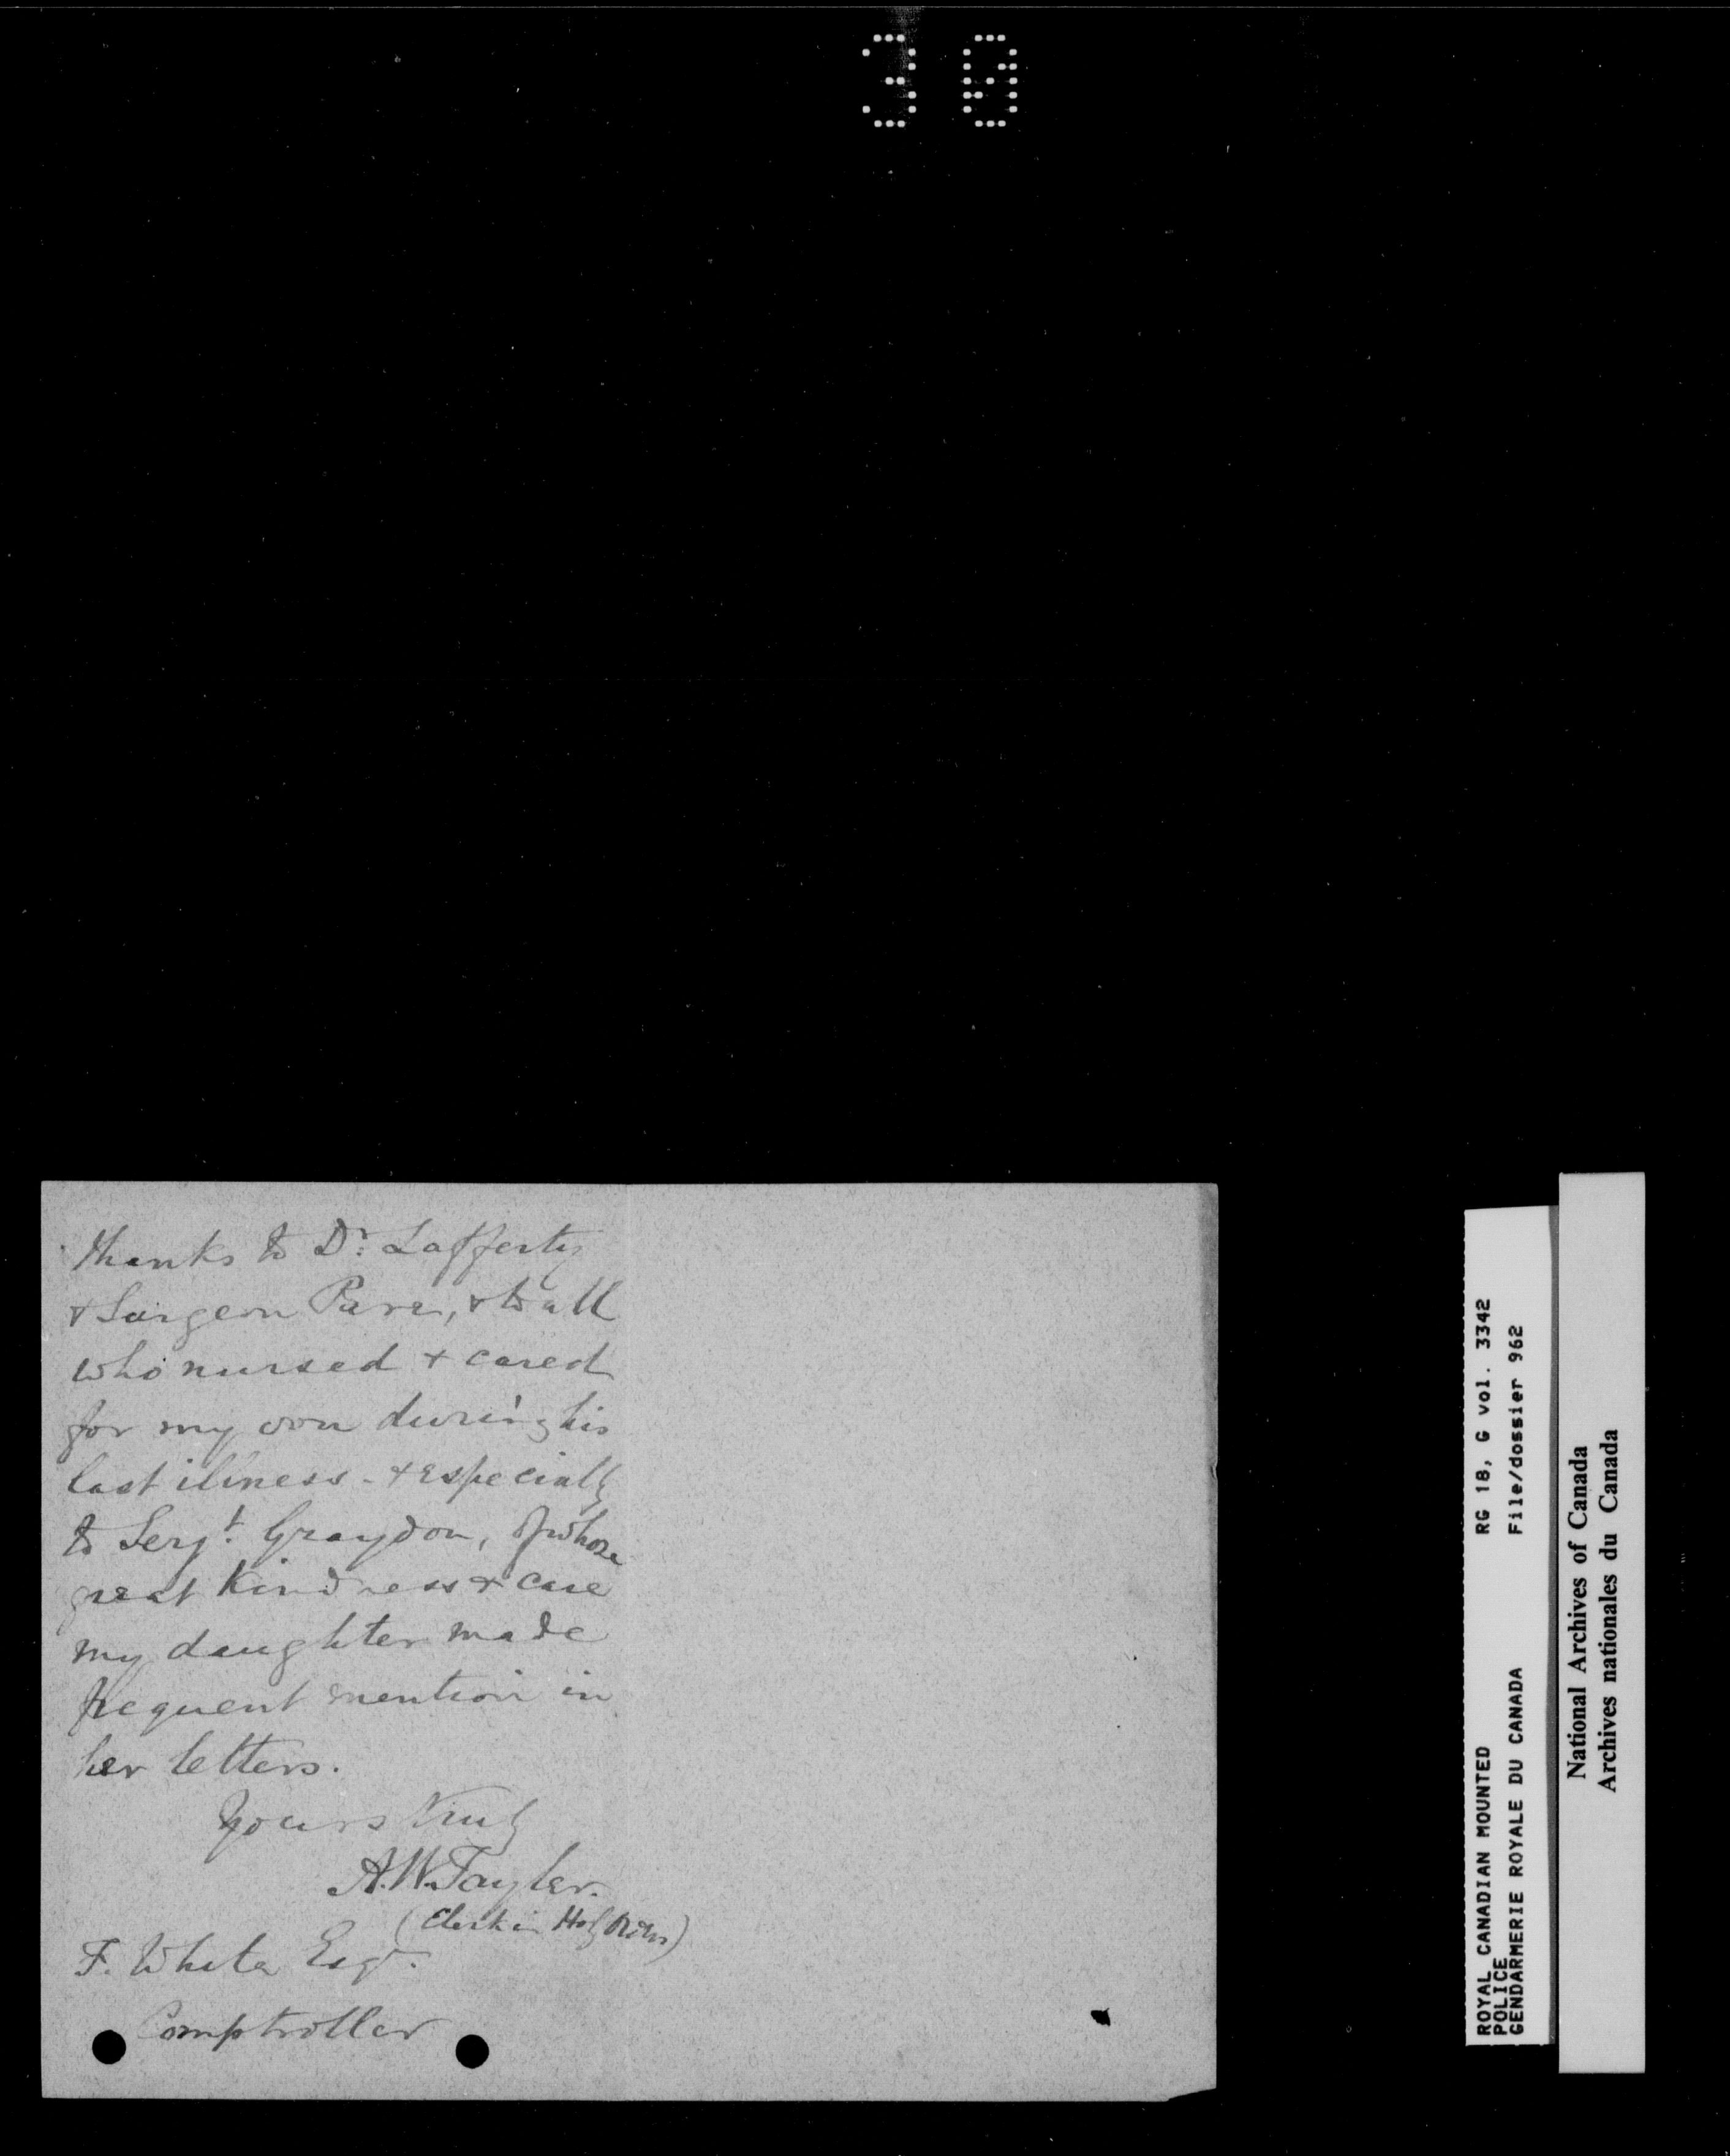 30
thanks to Dr. Lafferty
& Surgeon Pare, & to all
who nursed & cared
for my son during his
last illness - & especially
to Sergt. Graydon, of whose
great kindness & care
my daughter made
frequent mention in
her letters.
Yours truly
A.W. Tayler.
(Clerk in
F. White Esqr.
Comptroller
ROYAL CANADIAN MOUNTED RG 18, G vol. 3342
POLICE
GENDARMERIE ROYALE DU CANADA File/dossier 962
National Archives of Canada
Archives nationales du Canada